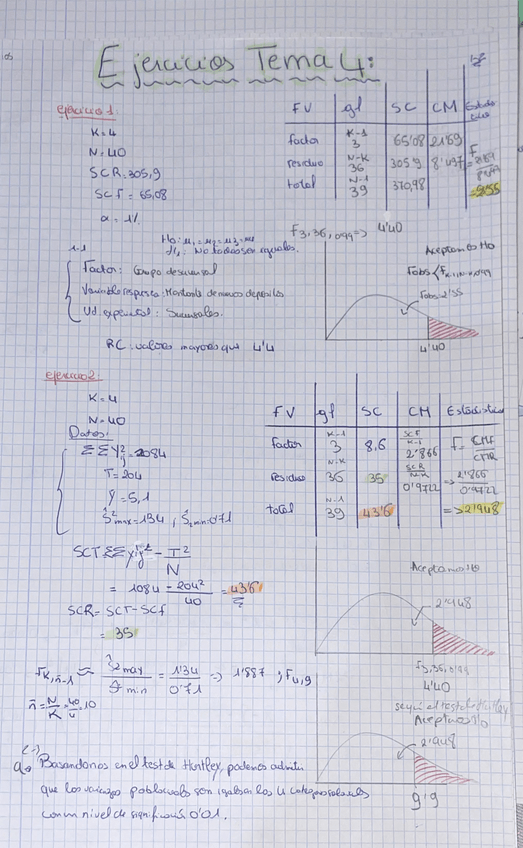 Ejercicios Tema 4:
ejercicio 1
K=4
N=40
SCR=305,9
SCF=65,08
α=1%
FV gl SC CM Estadístico
factor K-1 3 65'08 21'69
residuo N-K 36 305'9 8'497
total N-1 39 370,98
F3,36,0'99 => 4'40
H0: μ1=μ2=μ3=μ4
H1: No todas ser iguales.
1.1
Factor: Grupo de sucursal
Variable respuesta: Montante de nuevos depósitos
Ud experimental: Sucursales.
RC: valores mayores que 4'4
Aceptamos H0
Fobs<FK-1,N-K,0,99
Fobs=2'55
4'40
ejercicio 2:
K=4
N=40
Datos:
ΣΣY²ij=1084
T=204
ȳ=5,1
Ŝ²max=1'34, Ŝ²min=0'71
FV gl SC CM Estadístico
factor K-1 3 8,6 SCF K-1 2'866 F= CMF CMR
residuo N-K 36 35 SCR N-K 0'9722 => 2'866 0'9722
total N-1 39 43'6 => 2'948
SCT=ΣΣyij² - T² N
= 1084 - 204² 40 = 43'6
SCR= SCT-SCF
= 35
Aceptamos H0
2'948
F3,36,0'99
4'40
Ŝ²max Ŝ²min = 1'34 0'71 => 1'887; F4,9
n̄= N K = 40 4 =10
según el test de Hartley
Aceptamos H0
2'948
9'9
a. Basandonos en el test de Hartley, podemos admitir
que las varianzas poblacionales son iguales en las 4 categorias salariales
con un nivel de significación 0'01.